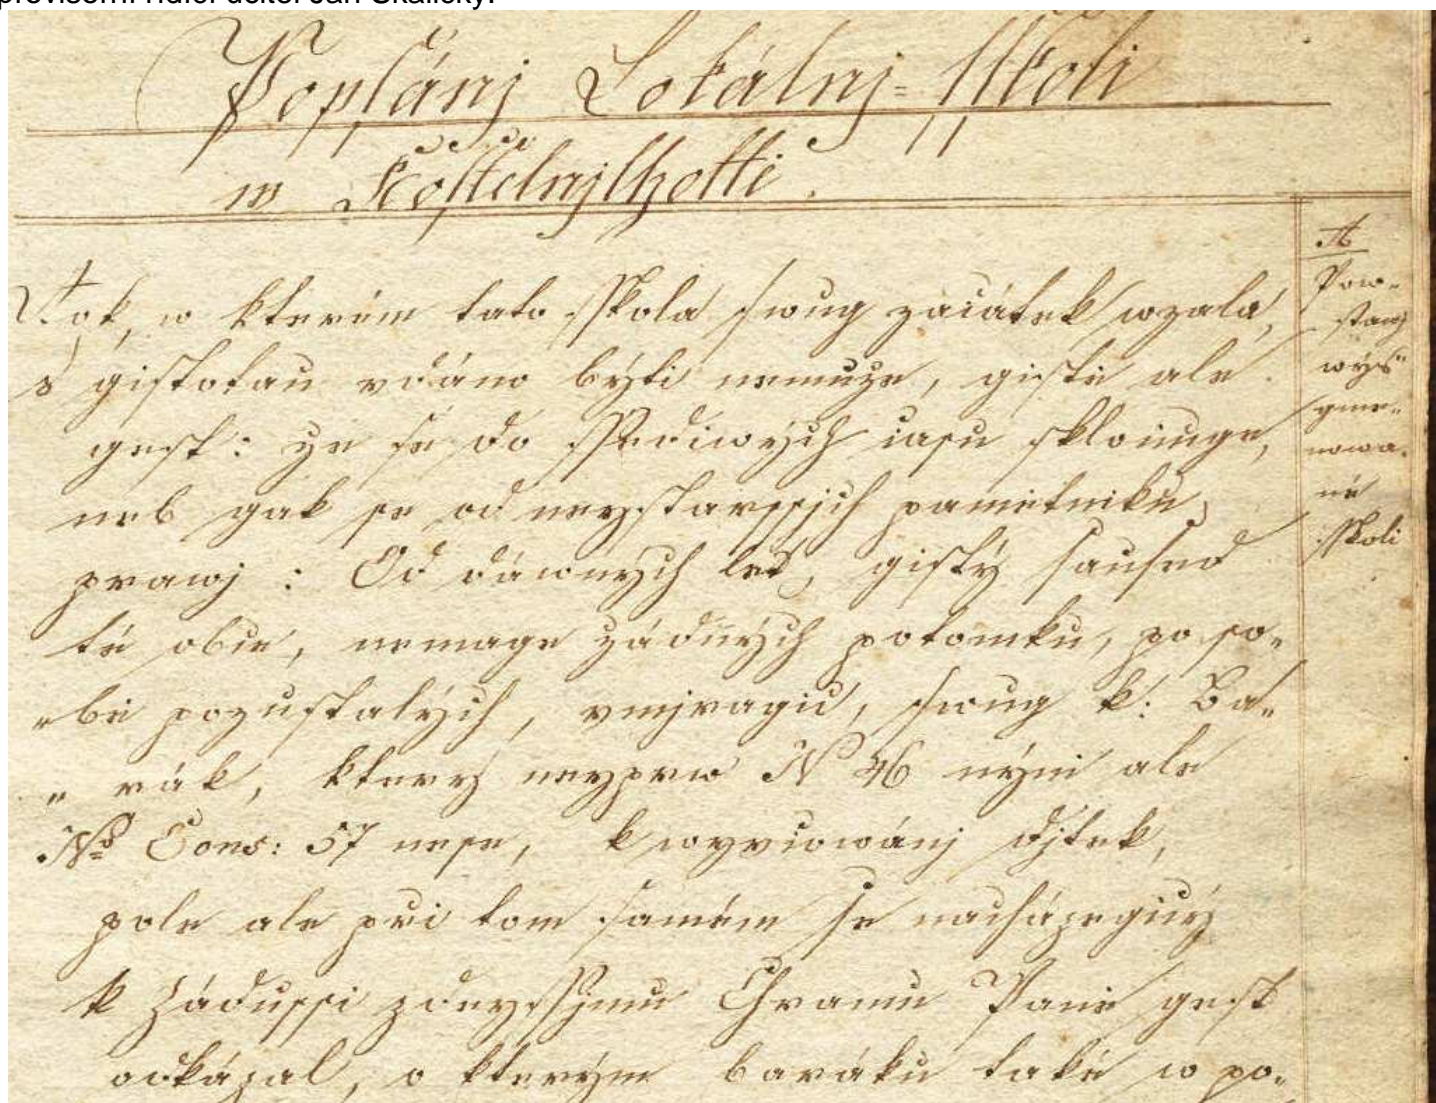 provisorní řídící učitel Jan Skalický.
Popsánj Lokálnj=sskoli
w Kostelnjlhotti.
Rok, w kterém tato sskola swug začátek wzala,
s gistotau vdáno býti nemuže, gistě ale
gest: že se do sskediwých času skloňuge,
neb gak se od neystarssjch pamětniku
prawj: Od dáwných led, gistý saused
té obce, nemage žádných potomku, po so„
„bě pozustalých, vmjragic, swug k: Ba„
„rák, který neyprw N 46 nýni ale
Nro Cons: 57 nese, k wyvčowánj djtek,
pole ale pri tom samém se nacházegicý
k Zádussi zdeyssjmu Chramu Páně gest
odkázal, o kterým baráku také w po„
A
Pow„
stanj
wýš„
gme„
nowa„
né
sskoli